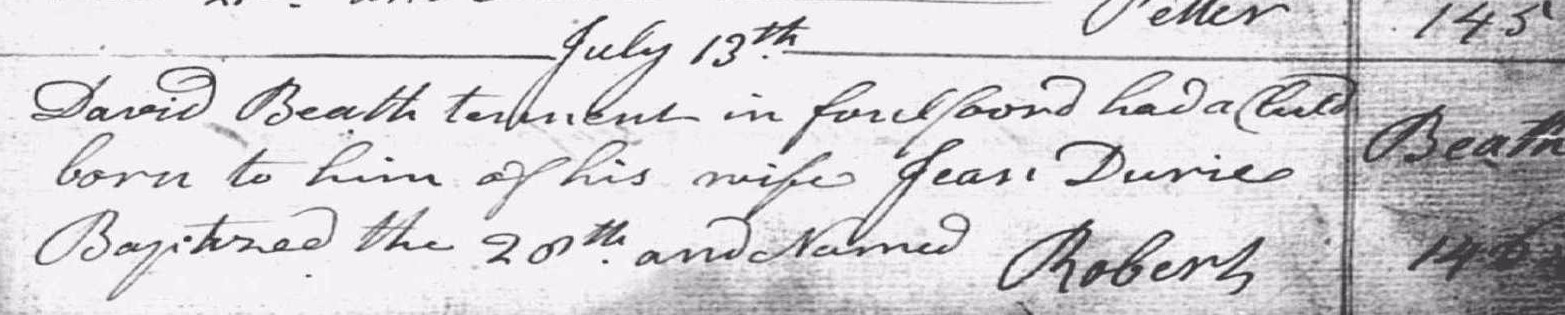 Petter 145
July 13th.
David Beath tennent in foulfoord had a Child
Beath
born to him of his wife Jean Durie
Baptized the 28th. and Named Robert 146